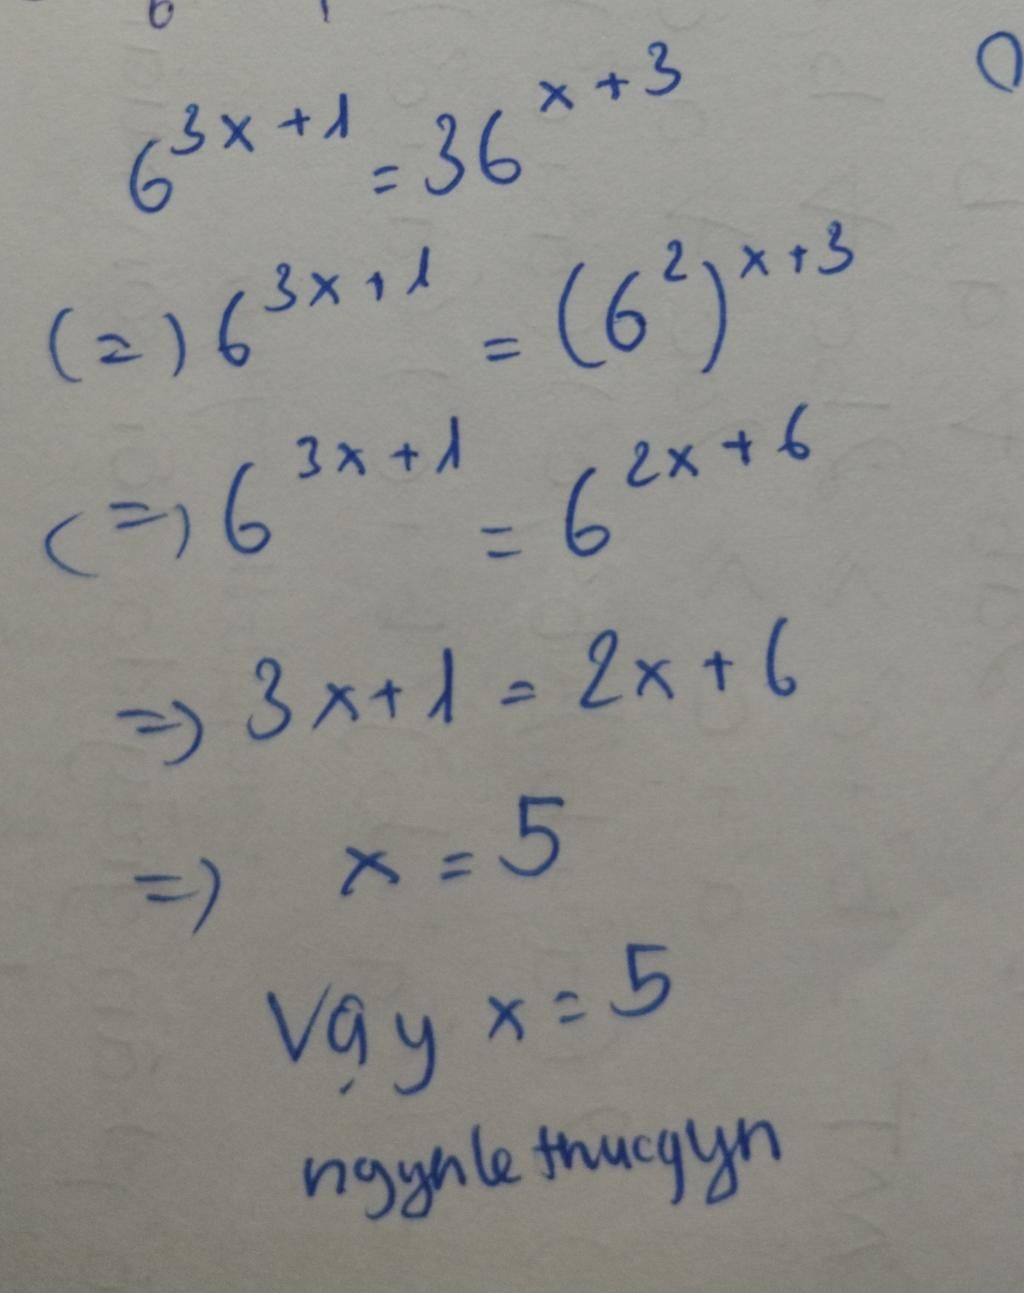 6^{3x+1} = 36^{x+3}
(=) 6^{3x+1} = (6^2)^{x+3}
(=) 6^{3x+1} = 6^{2x+6}
=) 3x+1 = 2x+6
=) x = 5
Vậy x = 5
ngynle thucqyn